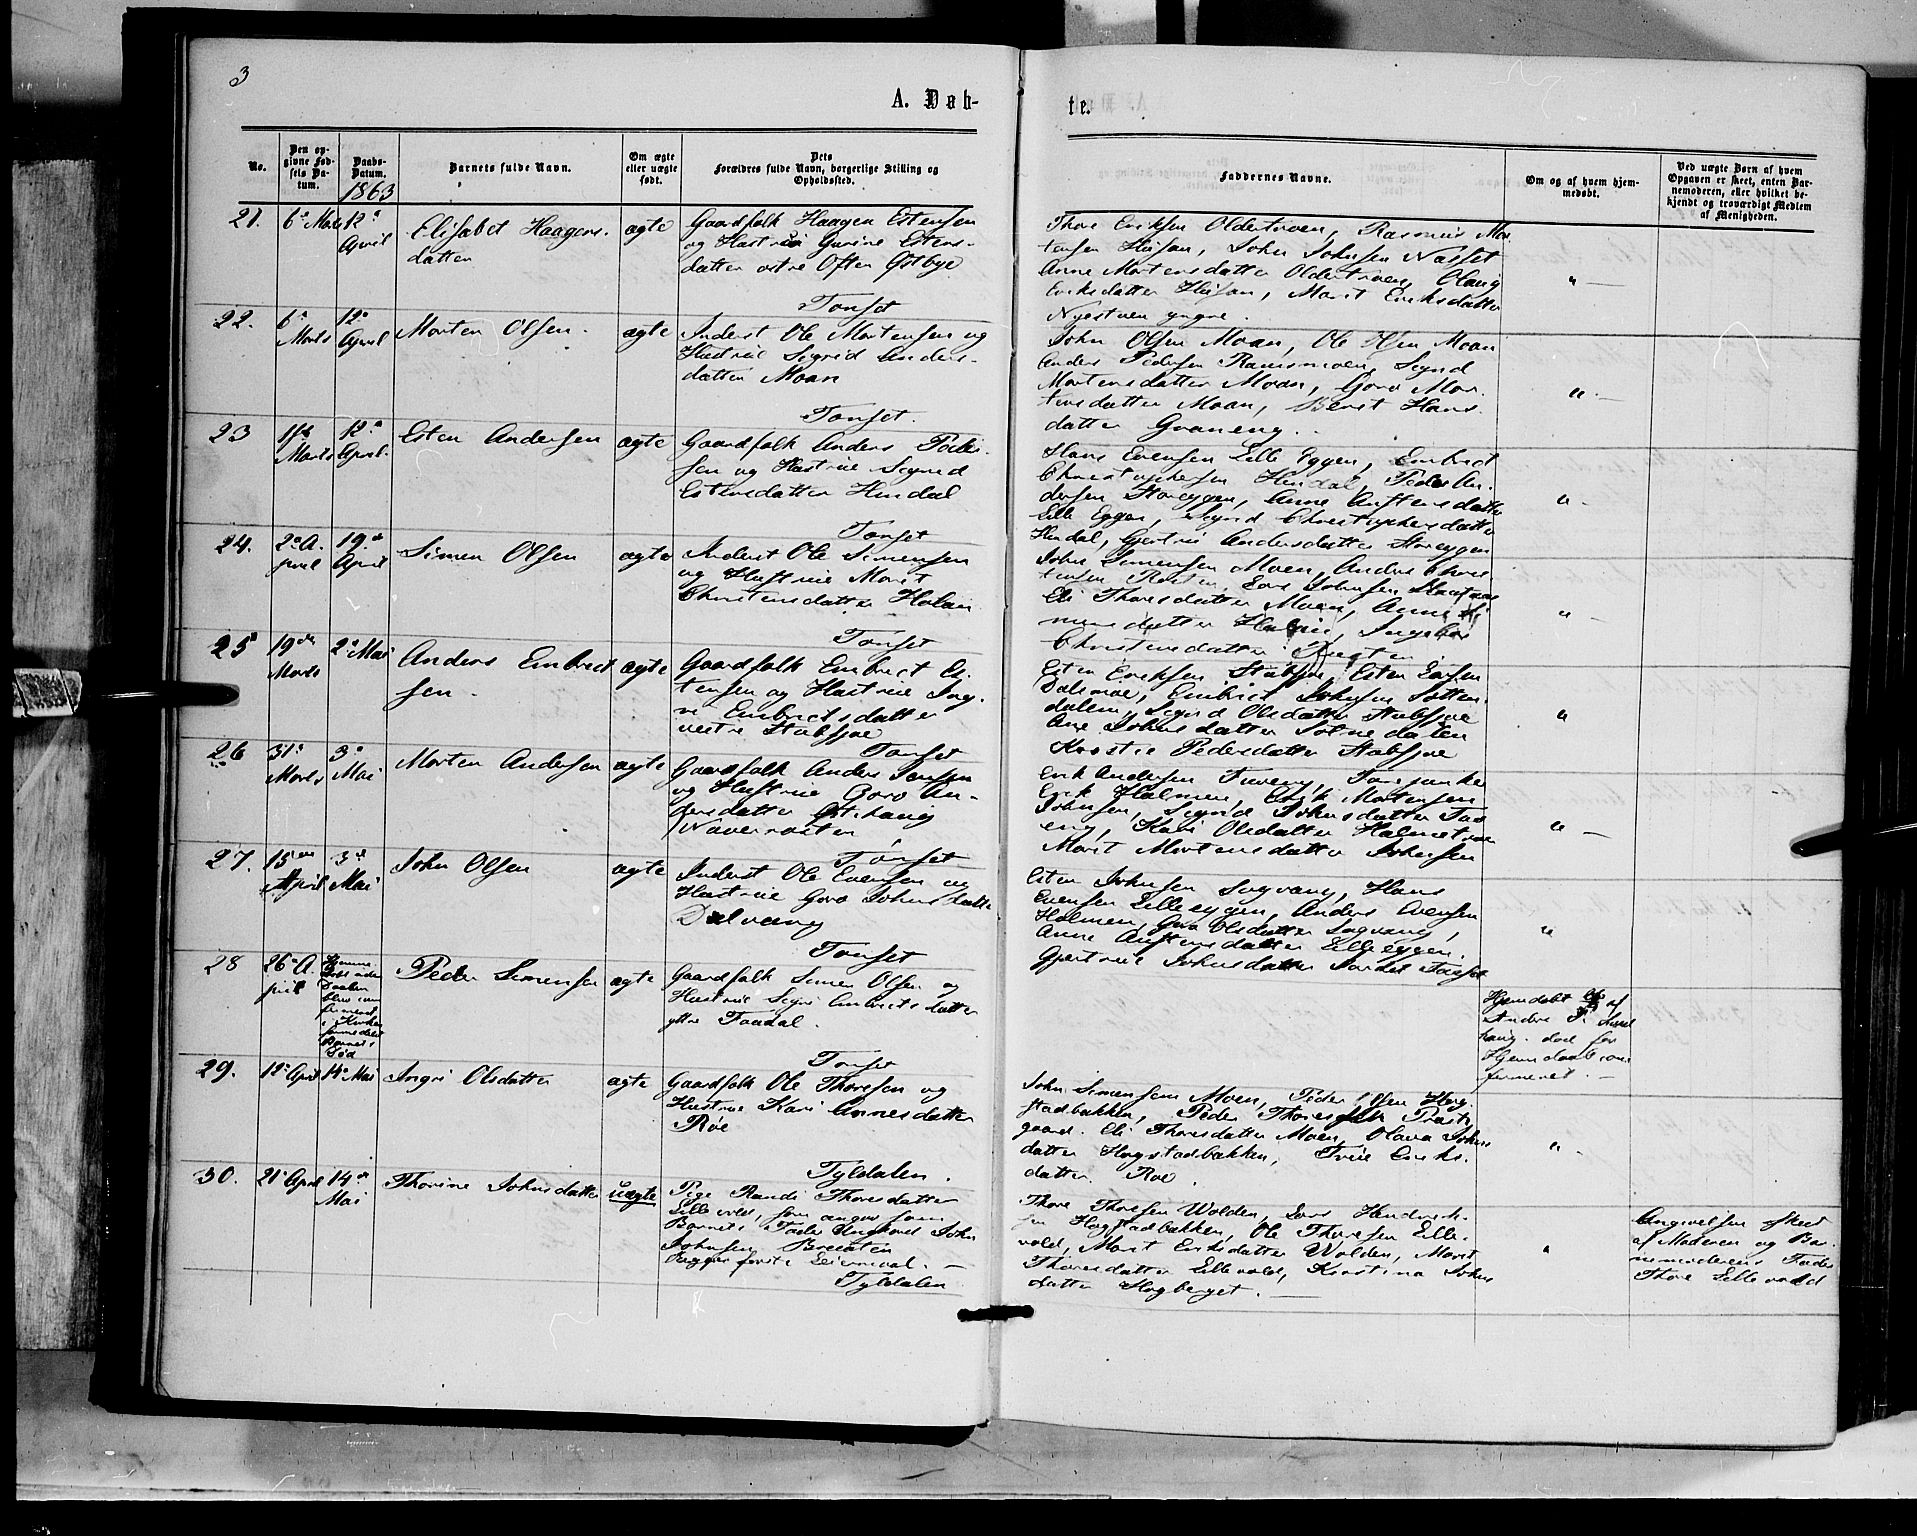 3
A. Døb-
te.
No.
Den op-
givne Fød-
sels Da-
tum.
Daabs-
Datum.
1863
Barnets fulde Navn.
Om ægte
eller uægte
født.
Dets
Forældres fulde Navn, borgerlige Stilling og
Opholdssted.
Faddernes Navne.
Om og af hvem hjem-
medøbt.
Ved uægte Børn af hvem
Opgaven er skeet, enten Bar-
nemoderen, eller hvilket be-
kjendt og troværdigt Medlem
af Menigheden.
21.
6te Marts
12te
April
Elisabet Haagens-
datter
ægte
Gaardfolk Haagen Estensen
og Hustrue Gurine Estens-
datter østre Østbye
Tonset
Thore Eriksen Oldertroen, Rasmus Mor
tensen John Johnsen Nasset
Anne Mortensdatter Oldertroen, Olaug
Eriksdatter Marit Eriksdatter
Nyestuen yngre.
22.
6te
Marts
12te
April
Morten Olsen.
ægte
Inderst Ole Mortensen og
Hustrue Sigrid Anders-
datter Moan
Tonset.
John Olsen Moan, Ole Moan
Anders Pedersen Ramsmoen, Sigrid
Mortensdatter Moan, Goro Mor-
tensdatter Moan, Berit Hans
datter Graneng.
23
Marts
12te
April
Esten Andersen
ægte
Gaardfolk Anders Peder-
sen og Hustrue Sigrid
Estensdatter Hendal
Tonset
Hans Evensen Lille Eggen, Embret
Christophersen Hendal, Peder An-
dersen Storeggen, Anne Austensdatter
Lille Eggen, Sigrid Christophersdatter
Hendal, Gjertrue Andersdatter Storeggen
24.
2te A-
pril
19de
April
Simen Olsen
ægte
Inderst Ole Simensen
og Hustrue Marit
Christensdatter Holen
Tonset
John Simensen Moen, Anders Chris-
tensen Lars Johnsen
Eli Thoresdatter Moen, Anne Si-
mensdatter Ingebor
Christensdatter
25
19de
Marts
2de Mai
Anders Embret
sen.
ægte
Gaardfolk Embret Es-
tensen og Hustrue Ing-
ri Embretsdatter
vestre Stubsjøe
Tonset
Esten Eriksen Stubsjøe, Esten Larsen
Dalmoe, Embret Johnsen
dalen, Sigrid Olsdatter Stubsjøe
Ane Johnsdatter
Kirstie Pedersdatter Stubsjøe
26
31te
Marts
3de
Mai
Morten Andersen
ægte
Gaardfolk Anders
og Hustrue Goro An-
dersdatter Østehaug
Naveraasen
Tonset
Erik Andersen
Erik Holmen, Erik Mortensen
Johnsen, Sigrid Johnsdatter
eng, Kari Olsdatter Holmetroe
Marit Mortensdatter Johnsen
27.
15de
April
3de
Mai
John Olsen
ægte
Inderst Ole Evensen og
Hustrue Goro Johnsdatter
Dalvang
Tonset
Esten Johnsen Sagvang, Hans
Evensen Lilleeggen, Anders Evensen
Holmen, Goro Olsdatter Sagvang,
Anne Austensdatter Lilleeggen.
Gjertrue Johnsdatter
28
26de A-
pril
Hjemme-
døbt uden
Daaben
blev con
firmeret
i Kirken
formedelst
Barnets
Død
Peder Simensen
ægte
Gaardfolk Simen Olsen og
Hustrue Sigri Embretsdatter
yttre Faadal.
Tonset
Hjemdøbt af
Andre
haug. død før
Hjemdaab con
firmeret. —
29.
12te April
14de Mai
Ingri Olsdatter
ægte
Gaardfolk Ole Thoresen og
Hustrue Kari Annesdatter
Røe
Tyldalen.
John Simensen Moen, Peder Olsen Hog-
stadbakken, Peder Thoresen Præste
gaard. Eli Thoresdatter Moen, Olava Johns
datter Hogstadbakken, Eriks-
datter Roe.
30.
21de April
14de
Mai
Thorine Johnsdatter
uægte
Pige Randi Thoresdatter
Lillevold, som angav som
Barnets Fader Ungkarl John
Johnsen Breisten
Begges første Leiermaal. —
Tyldalen
Thore Thoresen Wolden, Lars Hendrik-
sen Hogstadbakken, Ole Thoresen Lille-
vold, Marit Eriksdatter Wolden, Marit
Thoresdatter Lillevold, Kirstina Johns
datter Hogberget. —
Angivelsen skeet
af Moderen og Bar-
nemoderens Fader
Thore Lillevold